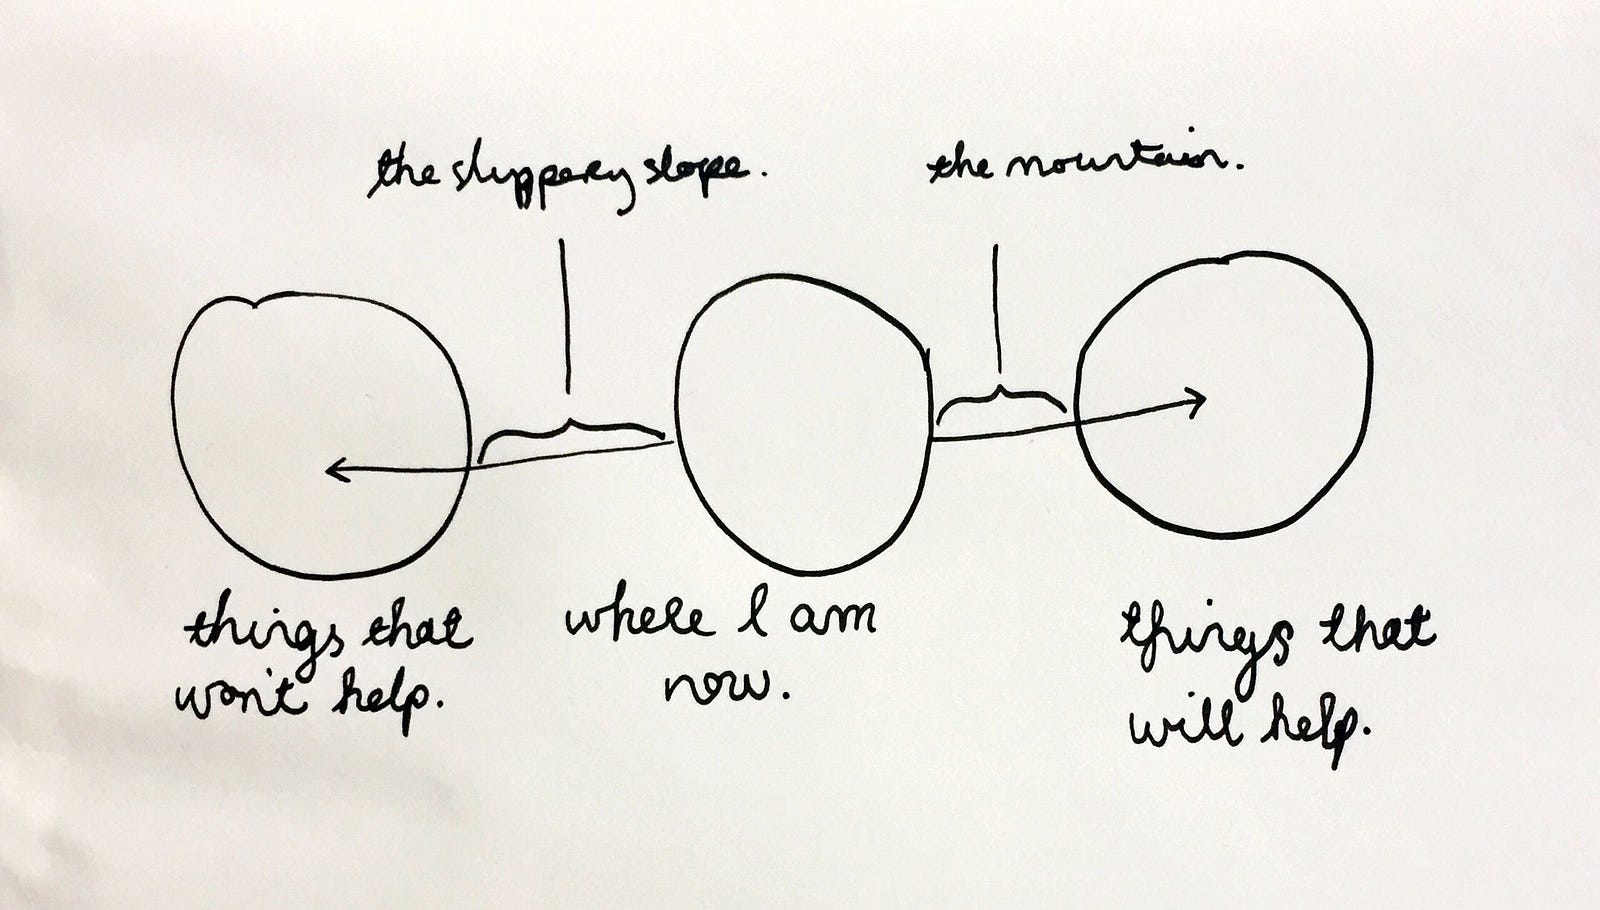 the slippery slope.
the mountain.
things that
won't help.
where I am
now.
things that
will help.